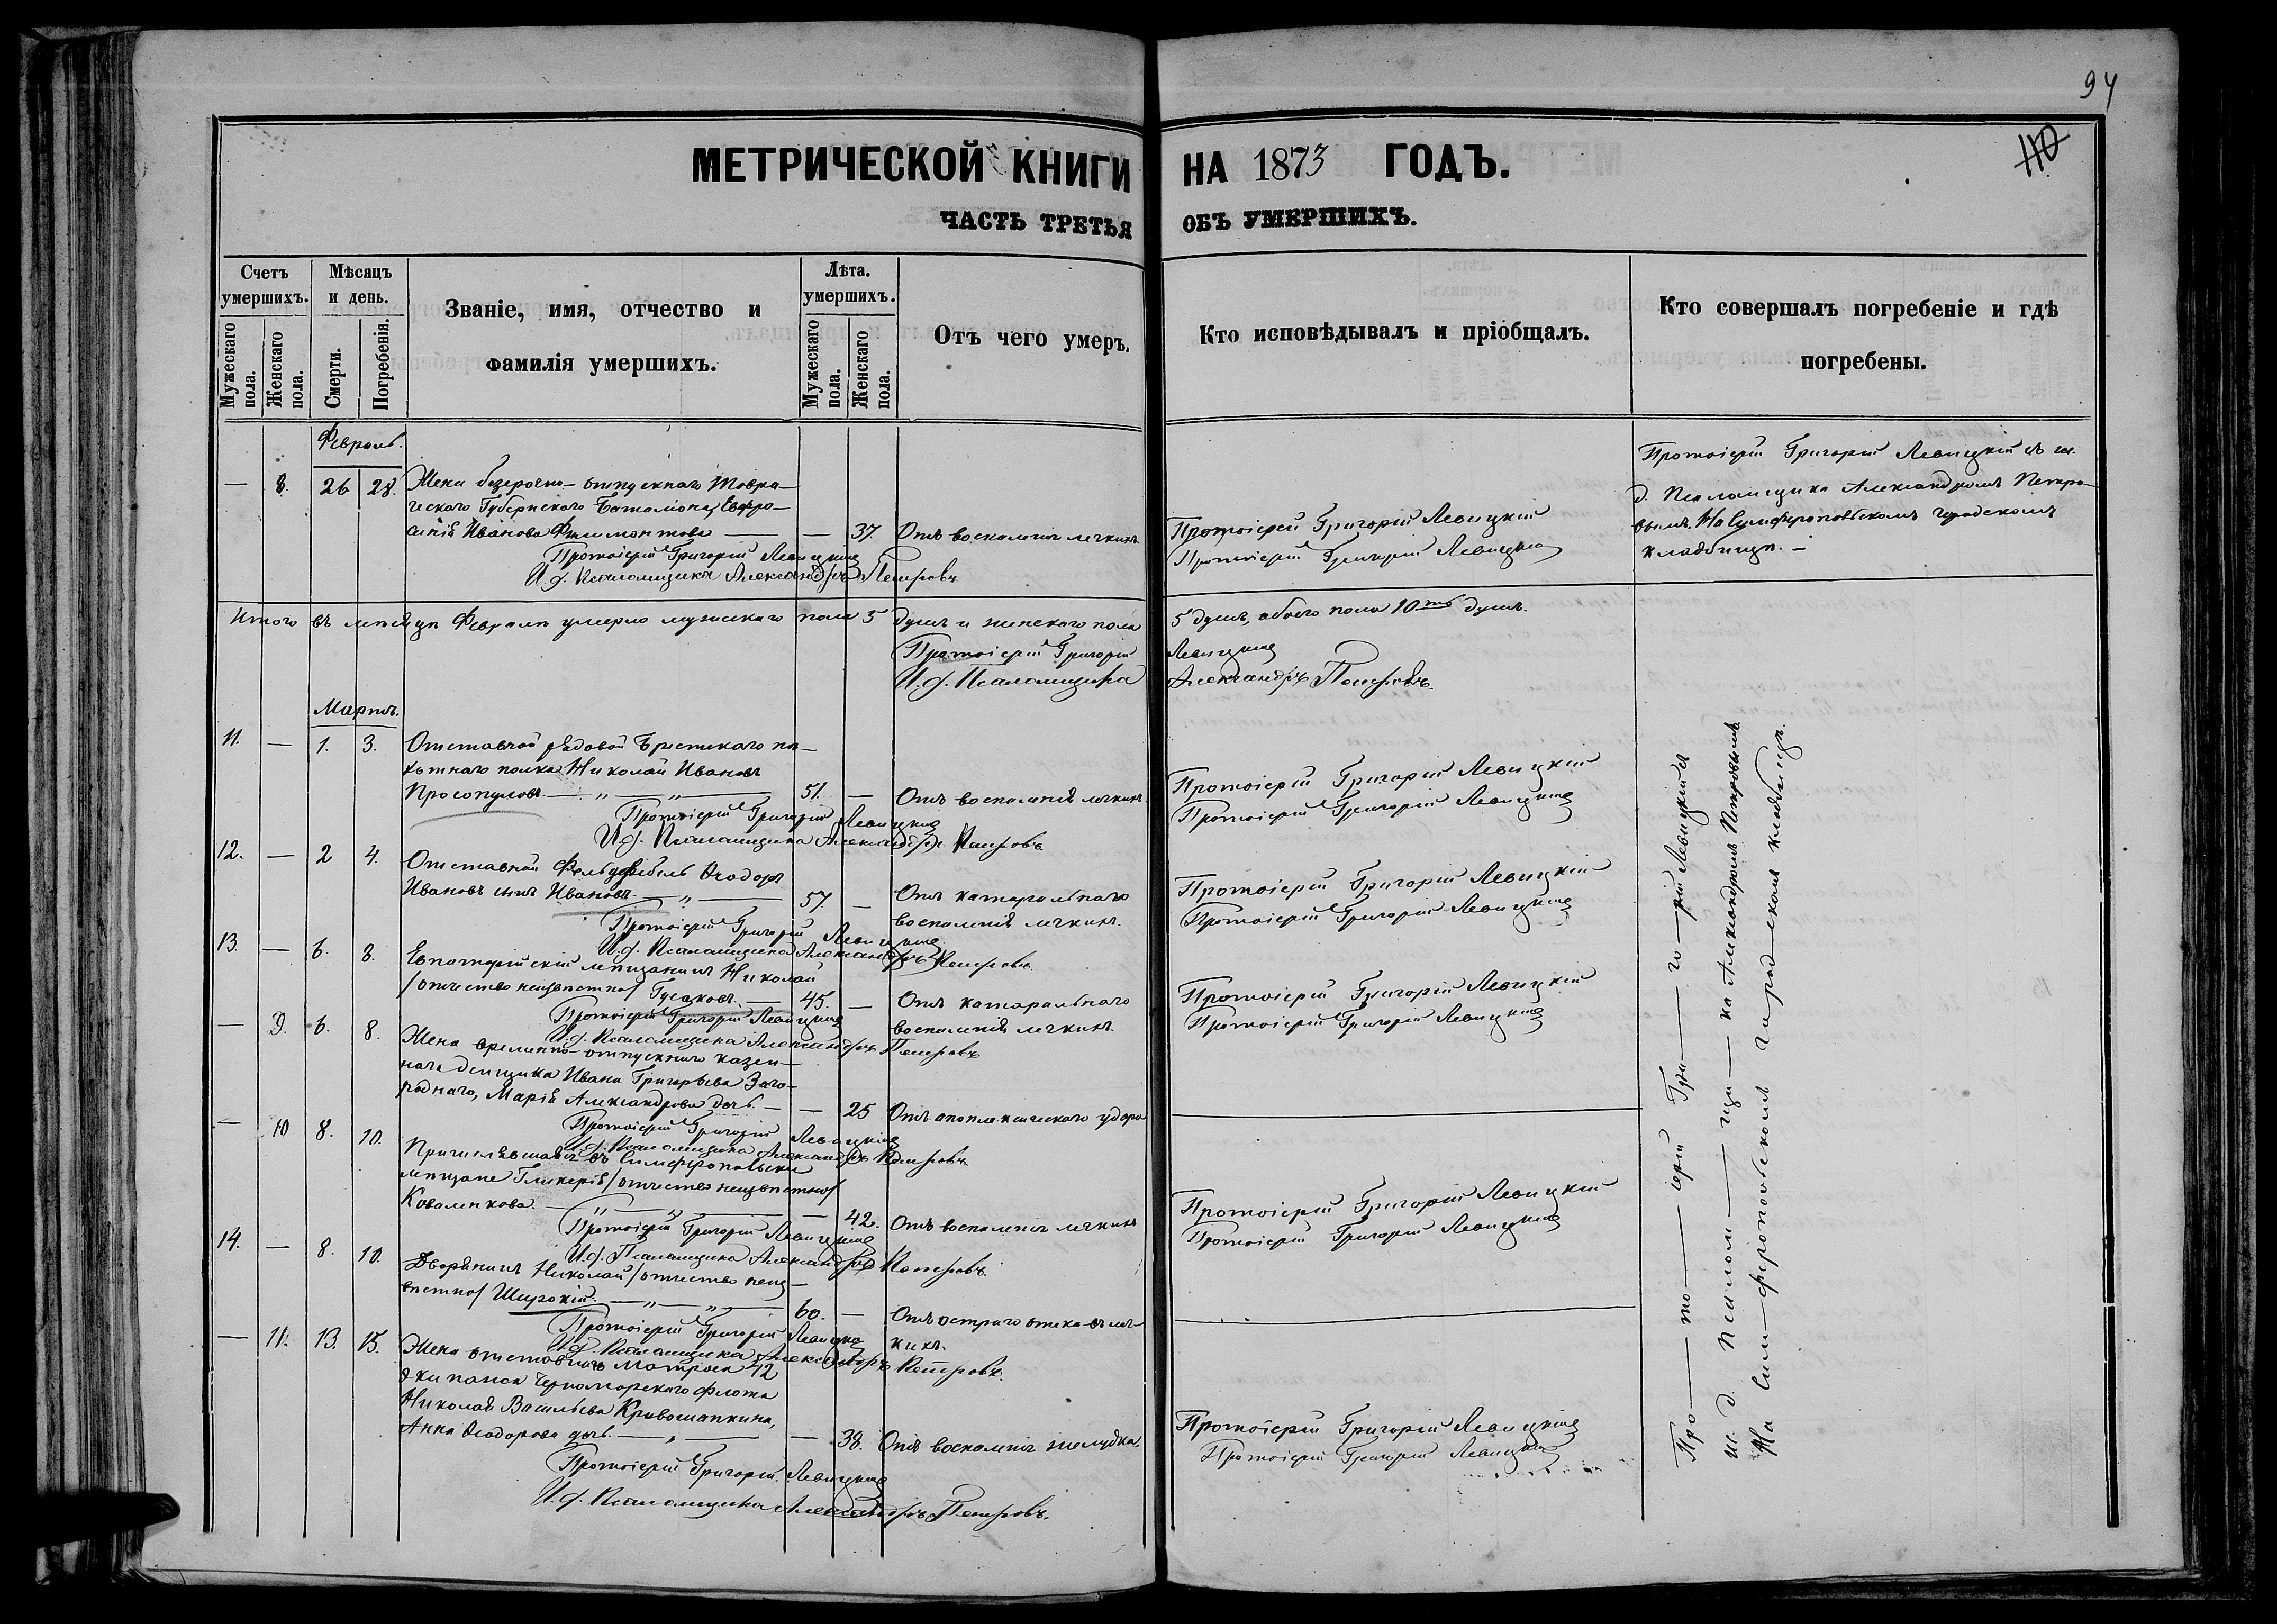 94
110
МЕТРИЧЕСКОЙ КНИГИ НА 1873 ГОДЪ.
ЧАСТЬ ТРЕТЬЯ ОБЪ УМЕРШИХЪ.
Счетъ умершихъ.
Мужескаго пола.
Женскаго пола.
Мѣсяцъ и день.
Смерти.
Погребенія.
Званіе, имя, отчество и
фамилія умершихъ.
Лѣта. умершихъ.
Мужескаго пола.
Женскаго пола.
Отъ чего умеръ.
Кто исповѣдывалъ и пріобщалъ.
Кто совершалъ погребеніе и гдѣ
погребены.
Февраль.
— 8. 26 28. Жена безсрочно-отпускнаго Таври-
ческаго Губернскаго Баталіона, Евфро-
синія Иванова Филимонтова — — 37. Отъ воспаленія легкихъ
Протоіерей Григорій Левицкій
И. д. Псаломщика Александръ Петровъ
Протоіерей Григорій Левицкій
Протоіерей Григорій Левицкій
Протоіерей Григорій Левицкій съ и.
д. Псаломщика Александромъ Петро-
вымъ. На Симферопольскомъ городскомъ
кладбищѣ. —
Итого въ мѣсяцѣ Февралѣ умерло мужескаго пола 5 душъ и женскаго пола 5 душъ, обоего пола 10ть душъ.
Протоіерей Григорій Левицкій
И. д. Псаломщика Александръ Петровъ.
Мартъ.
11. — 1. 3. Отставной рядовой Брестскаго пѣ-
хотнаго полка Николай Ивановъ
Просопуловъ. — „ — „ — 51. — Отъ воспаленія легкихъ
Протоіерей Григорій Левицкій
И. д. Псаломщика Александръ Петровъ
Протоіерей Григорій Левицкій
Протоіерей Григорій Левицкій
12. — 2 4. Отставной Фельдфебель Ѳеодоръ
Ивановъ сынъ Ивановъ. — „ — 57. — Отъ катаральнаго
воспаленія легкихъ.
Протоіерей Григорій Левицкій
И. д. Псаломщика Александръ Петровъ
Протоіерей Григорій Левицкій
Протоіерей Григорій Левицкій
13. — 6. 8. Евпаторійскій мѣщанинъ Николай
/отчество неизвѣстно/ Гусаковъ. — 45. — Отъ катаральнаго
воспаленія легкихъ.
Протоіерей Григорій Левицкій
И. д. Псаломщика Александръ Петровъ
Протоіерей Григорій Левицкій
Протоіерей Григорій Левицкій
— 9. 6. 8. Жена временно-отпускнаго казен-
наго деньщика Ивана Григорьева Заго-
роднаго, Марія Александрова дочь. — — 25 Отъ апоплексическаго удара
Протоіерей Григорій Левицкій
И. д. Псаломщика Александръ Петровъ
— 10 8. 10. Причислявшаяся въ Симферопольскія
мѣщане Гликерія /отчество неизвѣстно/
Коваленкова. — „ — „ — 42. Отъ воспаленія легкихъ
Протоіерей Григорій Левицкій
И. д. Псаломщика Александръ Петровъ
Протоіерей Григорій Левицкій
Протоіерей Григорій Левицкій
14. — 8. 10. Дворянинъ Николай /отчество неиз-
вѣстно/ Широкій. — „ — „ — 60. — Отъ остраго отека въ лег-
кихъ.
Протоіерей Григорій Левицкій
И. д. Псаломщика Александръ Петровъ.
— 11. 13. 15. Жена отставнаго матроса 42
экипажа Черноморскаго флота
Николая Васильева Кривошапкина,
Анна Ѳеодорова дочь. — „ — — 38. Отъ воспаленія желудка.
Протоіерей Григорій Левицкій
И. д. Псаломщика Александръ Петровъ.
Протоіерей Григорій Левицкій
Протоіерей Григорій Левицкій
Про — то — іерей Гри — го — рій Левицкій съ
и. д. Псалом — щи — ка Александромъ Петровымъ
На Сим — феропольскомъ го род — скомъ кладбищѣ.